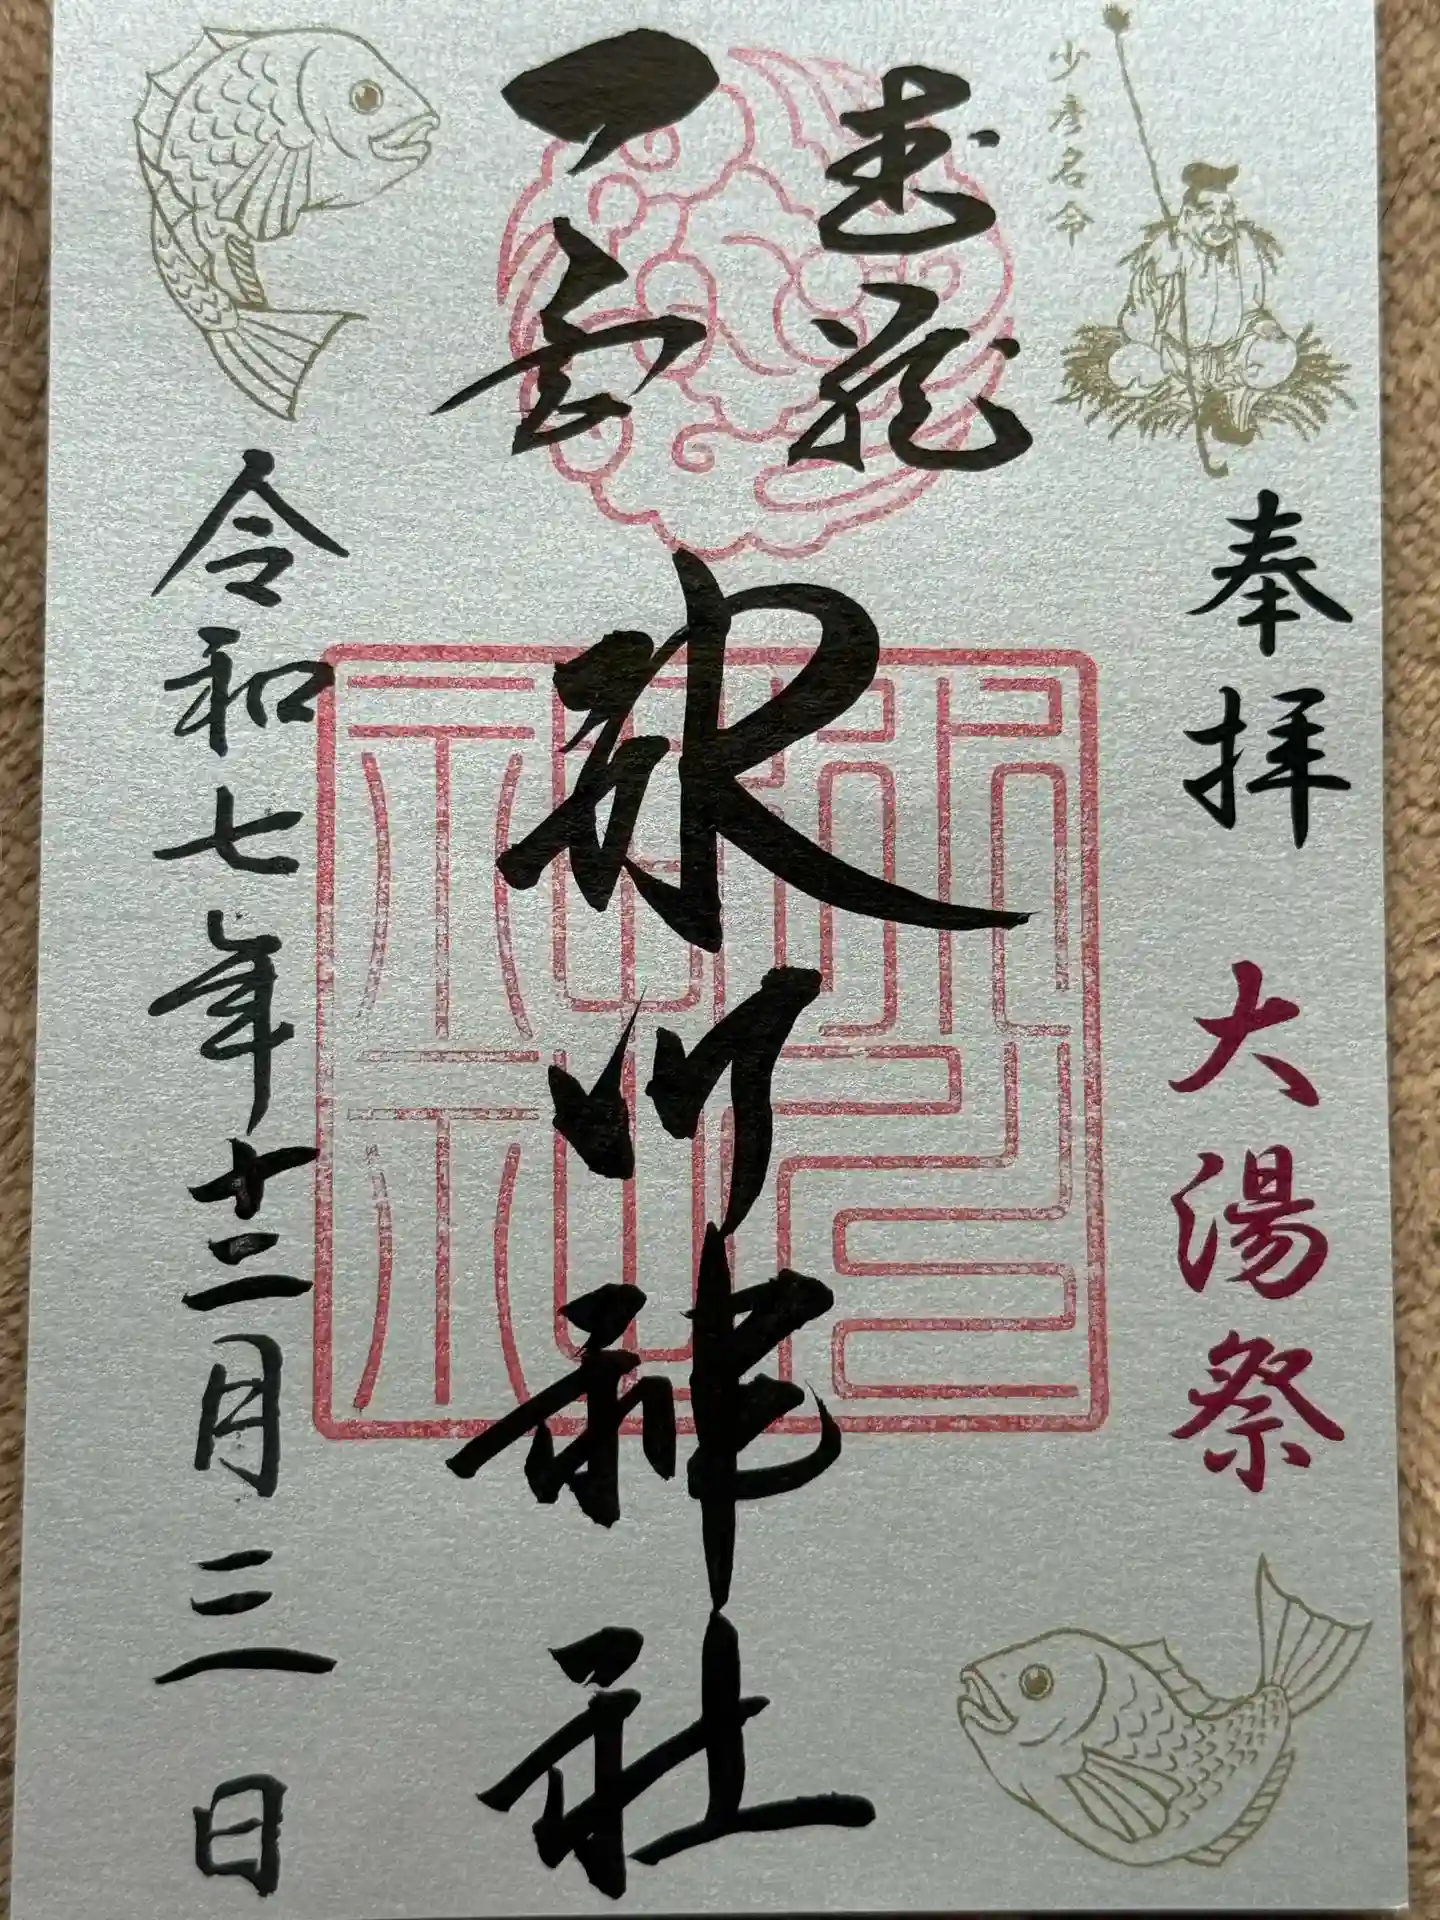 少彦名命
奉拝 大湯祭
武蔵
一宮
氷川神社
令和七年十二月三日